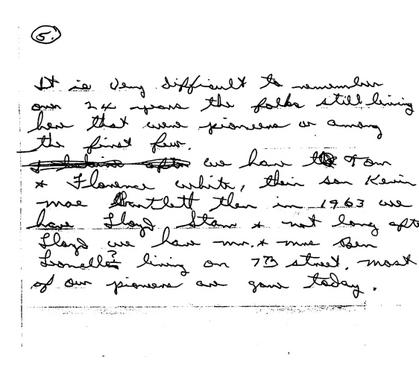 5.
It is very difficult to remember
over 24 years the folks still living
here that were pioneers or among
the first few.
we have Tom
& Florence White, their son Kevin
mae Bartlett then in 1963 we
have Lloyd Stam & not long afte
Lloyd we have mr. & mrs Ben
Leonello? living on 7th street. most
of our pioneers are gone today.